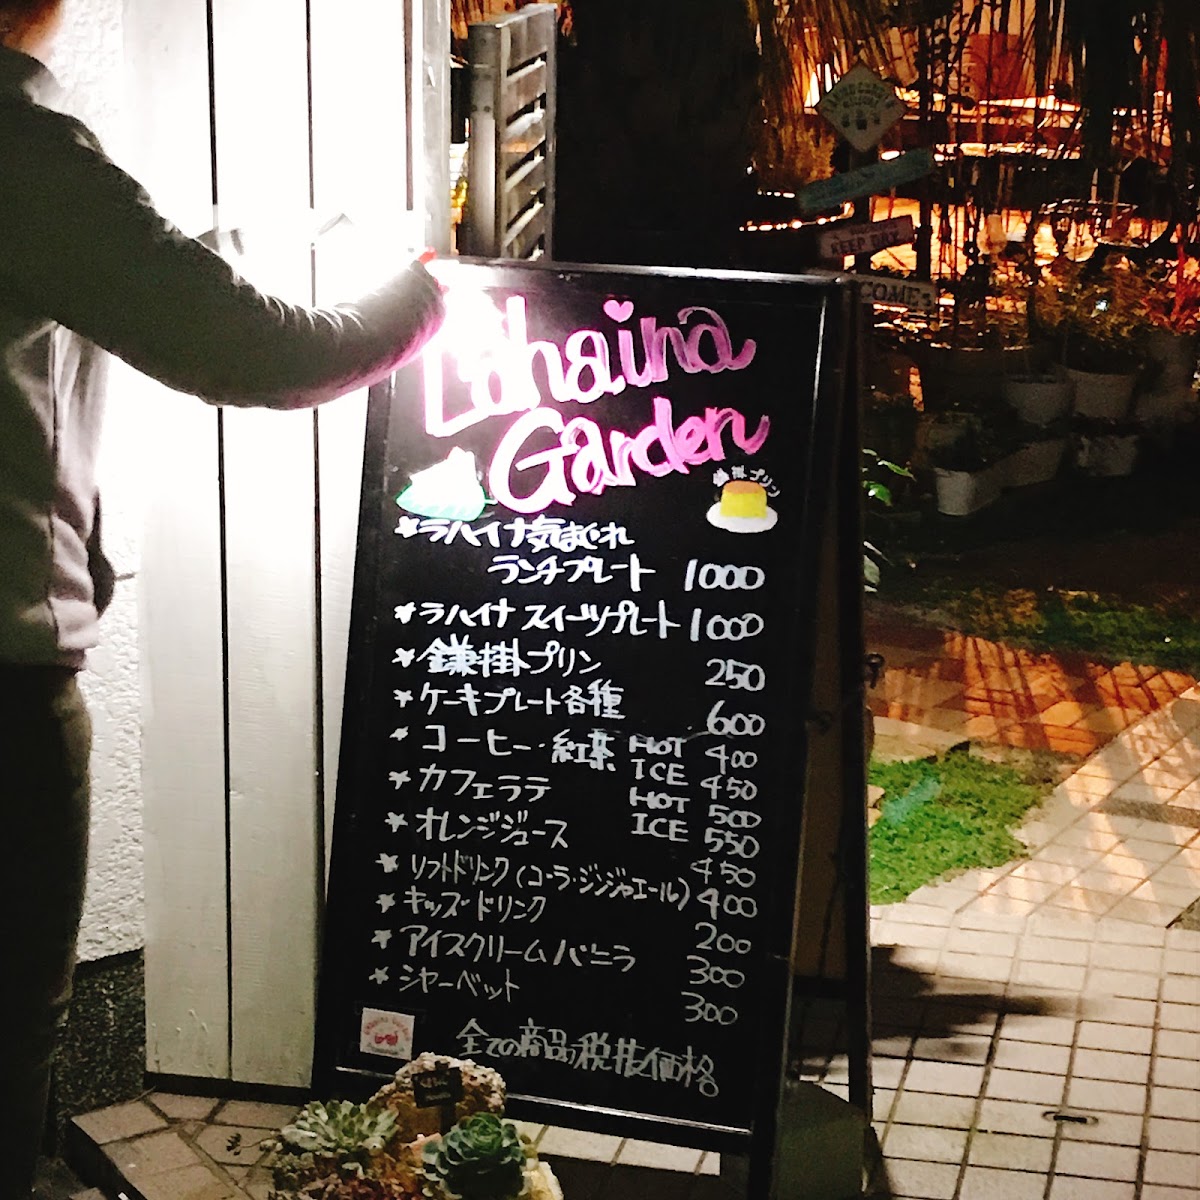 Lahaina
Garden
鎌掛プリン
★ラハイナ気まぐれ
ランチプレート 1000
★ラハイナ スイーツプレート 1000
★鎌掛プリン 250
★ケーキプレート各種 600
★コーヒー・紅茶 HOT 400
ICE 450
★カフェラテ HOT 500
ICE 550
★オレンジジュース 450
★ソフトドリンク(コーラ・ジンジャエール) 400
★キッズドリンク 200
★アイスクリームバニラ 300
★シャーベット 300
全ての商品税抜価格
KEEP OUT
COME